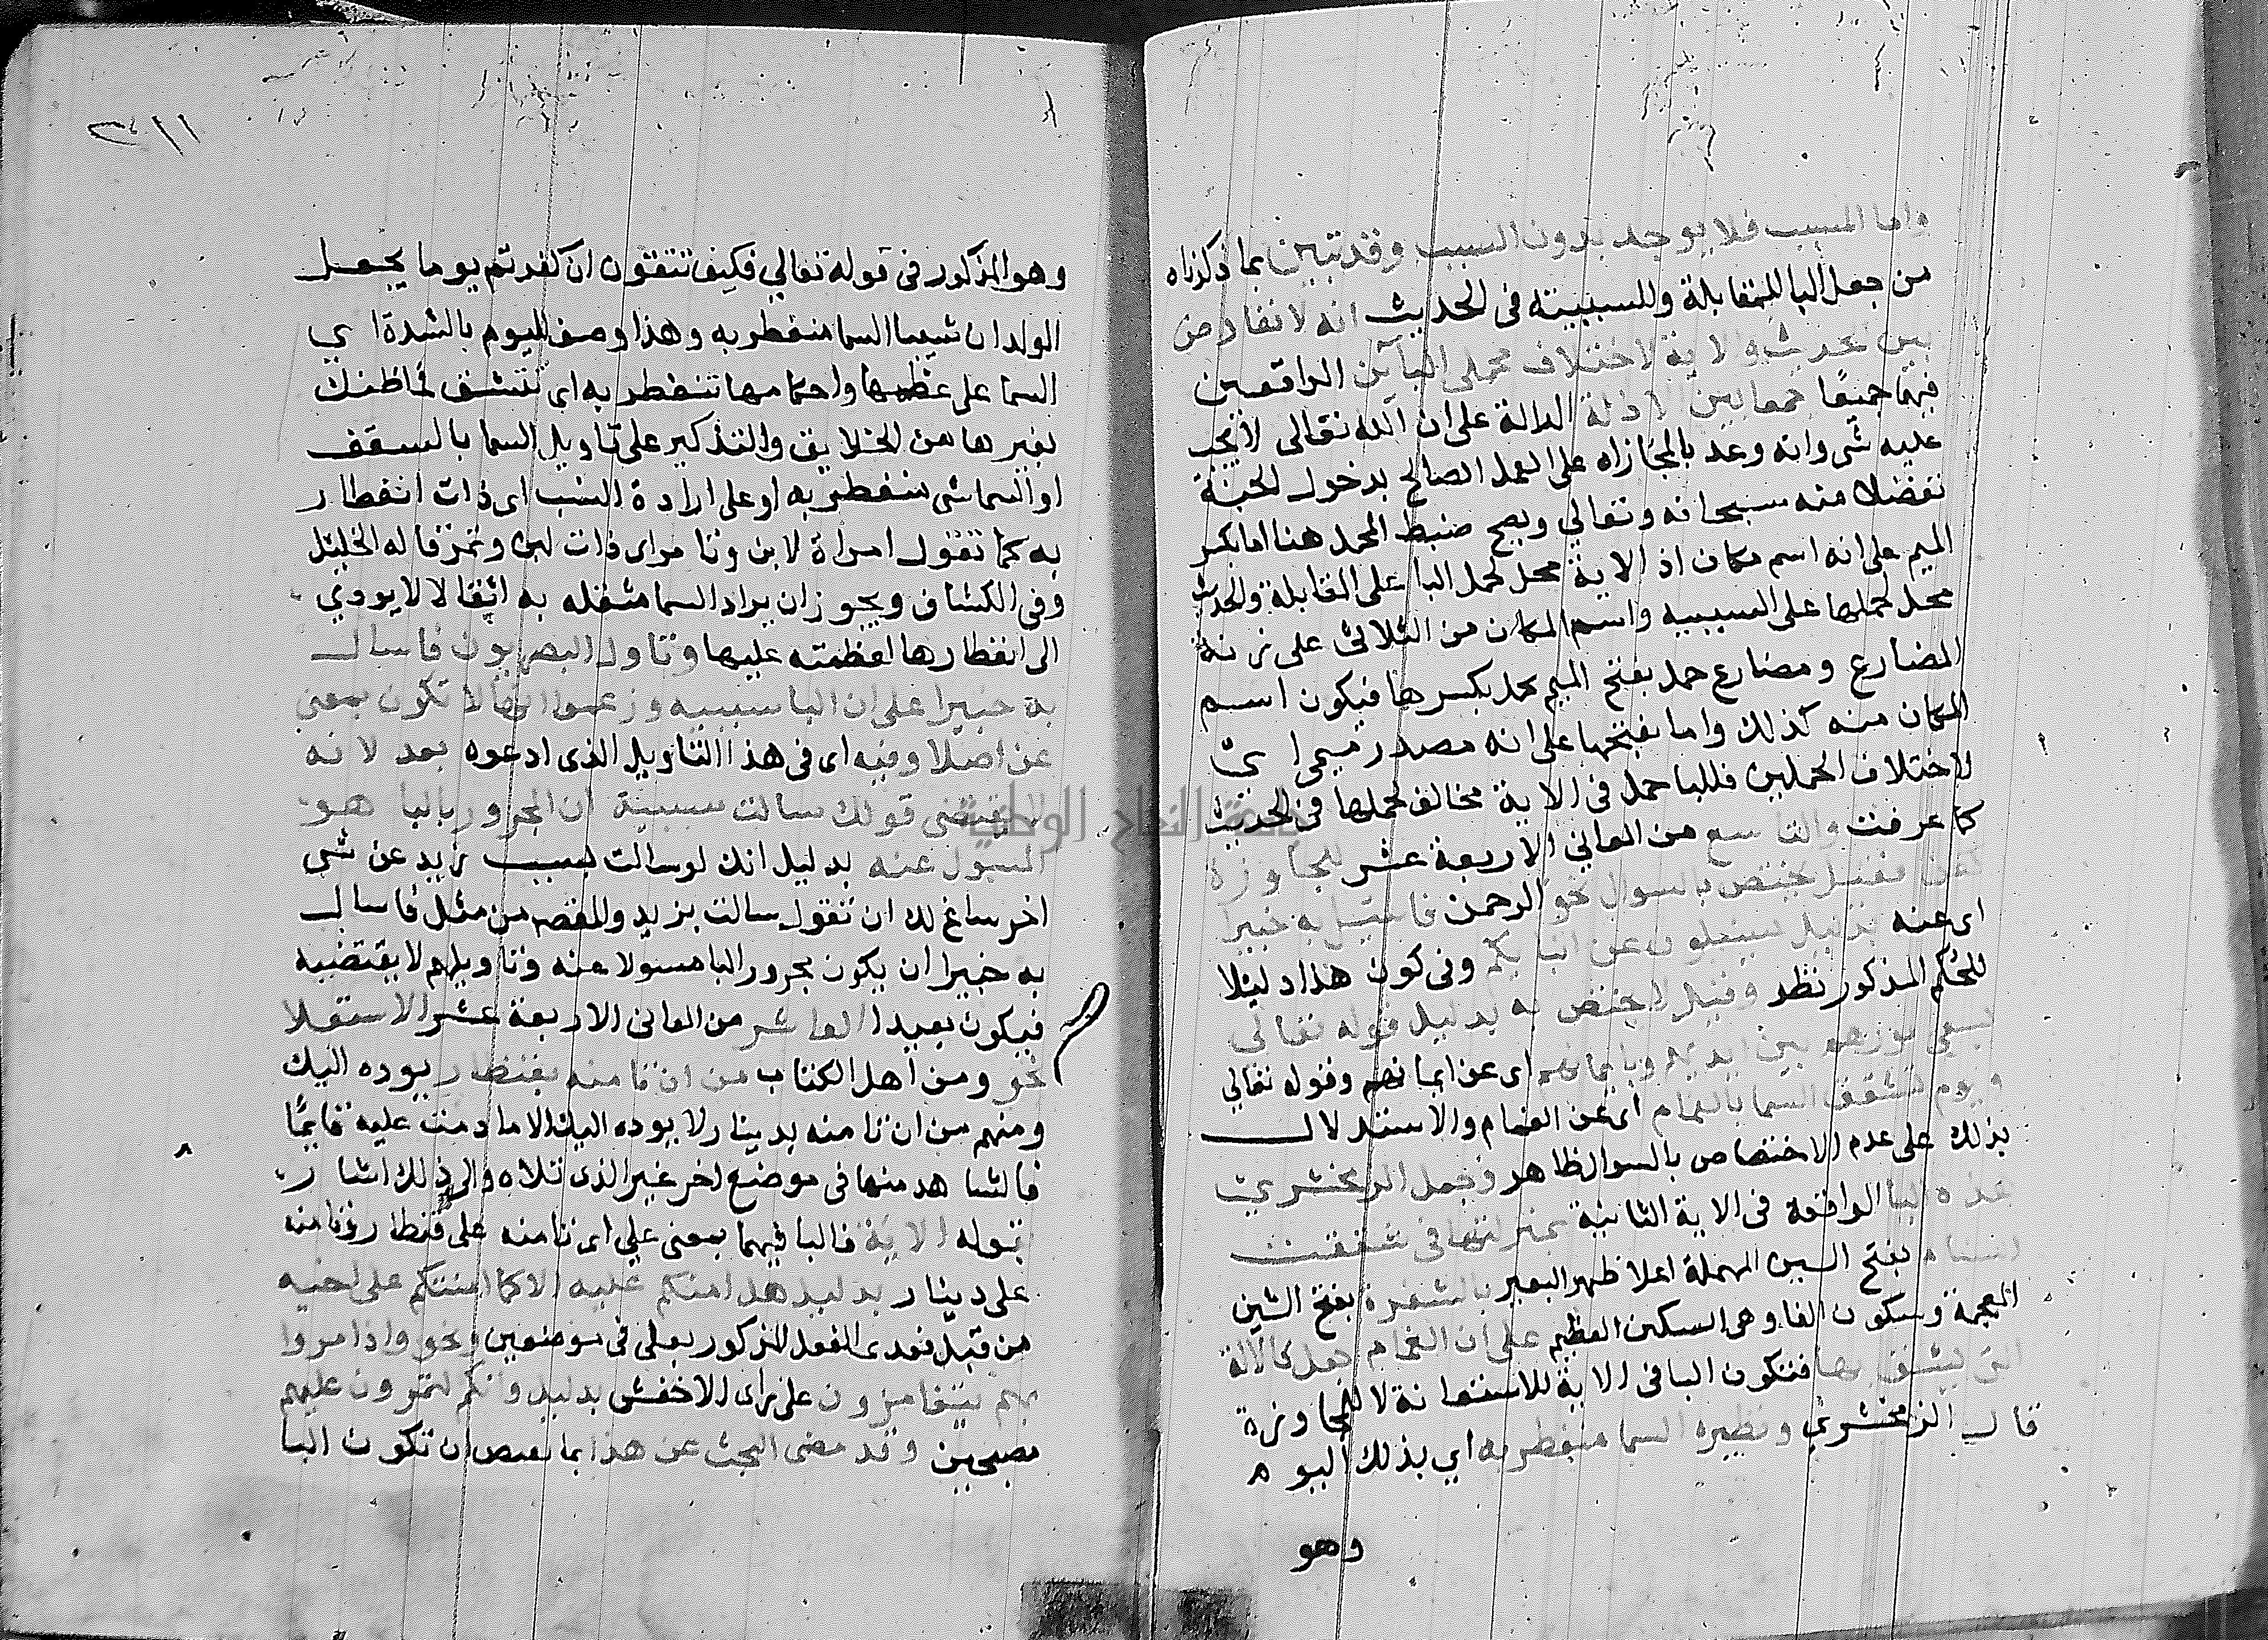 واما المسبب فلا يوجد بدون السبب وقد تبين بما ذكرناه
من جعل البا للمقابلة وللسببية فى الحديث انه لا تعارض
بين الحديث والاية لاختلاف محملى البآين الواقعين
فيهما جمعًا بين الادلة الدالة على ان الله تعالى لا يجب
عليه شى وانه وعد بالمجازاه على العمل الصالح بدخول الجنة
تفضلا منه سبحانه وتعالي ويصح ضبط المحمد هنا اما بكسر
الميم على انه اسم مكان اذ الاية محل لحمل البا على المقابلة والحديث
محل لحملها على السببيه واسم المكان من الثلاثى على زنة
المضارع ومضارع حمد بفتح الميم يحمد بكسرها فيكون اسم
المكان منه كذلك واما بفتحها على انه مصدر ميمى اى
لاختلاف الحملين فللبا حمل فى الاية مخالف لحملها فى الحديث
كما عرفت والتاسع من المعاني الاربعة عشر المجاوزة
كعن فقيل تختص بالسوال نحو الرحمن فاسئل به خبيرا
اى عنه بدليل يسئلون عن انبايكم وفى كون هذا دليلا
للحكم المذكور نظر وقيل لا تختص به بدليل قوله تعالى
يسعى نورهم بين ايديهم وبايمانهم اى عن ايمانهم وقوله تعالي
ويوم تشقق السما بالغمام اى عن الغمام والاستدلال
بذلك على عدم الاختصاص بالسوال ظاهر وجعل الزمخشري
هذه البا الواقعة فى الاية الثانية بمنزلتها فى شققت
السنام بفتح السين المهملة اعلا ظهر البعير بالشفرة بفتح الشين
المعجمة وسكون الفا وهى السكين العظيم على ان الغمام جعل كالالة
التى يشق بها فتكون البا فى الاية للاستعانة لا للمجاوزة
قال الزمخشري ونظيره السما منفطر به اي بذلك اليوم
وهو
٢١١
وهو المذكور فى قوله تعالي فكيف تتقون ان كفرتم يوما يجعل
الولدان شيبا السما منفطر به وهذا وصف لليوم بالشدة اي
السما على عظمها واحكامها تنفطر به اى تنشق فما ظنك
بغيرها من الخلايق والتذكير على تاويل السما بالسقف
او السما شى منفطر به او على ارادة النسب اى ذات انفطار
به كما تقول امراة لابن وتامر اى ذات لبن وتمر قاله الخليل
وفى الكشاف ويجوز ان يراد السما مثقله به اثقالا لا يودي
الى انفطارها لعظمته عليها وتاول البصريون فاسال
به خبيرا على ان البا سببيه وزعموا انها لا تكون بمعنى
عن اصلا وفيه اى فى هذا التاويل الذى ادعوه بعد لانه
لا يقتضى قولك سالت بسببه ان المجرور بالبا هو
المسول عنه بدليل انك لو سالت بسبب زيد عن شى
اخر ساغ لك ان تقول سالت بزيد والمقصد من مثل فاسال
به خبيرا ان يكون مجرور البا مسولا عنه وتاويلهم لا يقتضيه
فيكون بعيدا العاشر من المعانى الاربعة عشر الاستعلا
نحو ومن اهل الكتاب من ان تامنه بقنطار يوده اليك
ومنهم من ان تامنه بدينار لا يوده اليك الا ما دمت عليه قايمًا
فالشاهد منها فى موضع اخر غير الذى تلاه والى ذلك اشار
بقوله الاية فالبا فيهما بمعنى على اى تامنه على قنطار وتامنه
على دينار بدليل هل امنكم عليه الا كما امنتكم على اخيه
من قبل فعدى الفعل المذكور بعلى فى موضعين ونحو واذا مروا
بهم يتغامزون على راى الاخفش بدليل وانكم لتمرون عليهم
مصبحين وقد مضى البحث عن هذا بما تضمن ان تكون البا
جامعة النجاح الوطنية